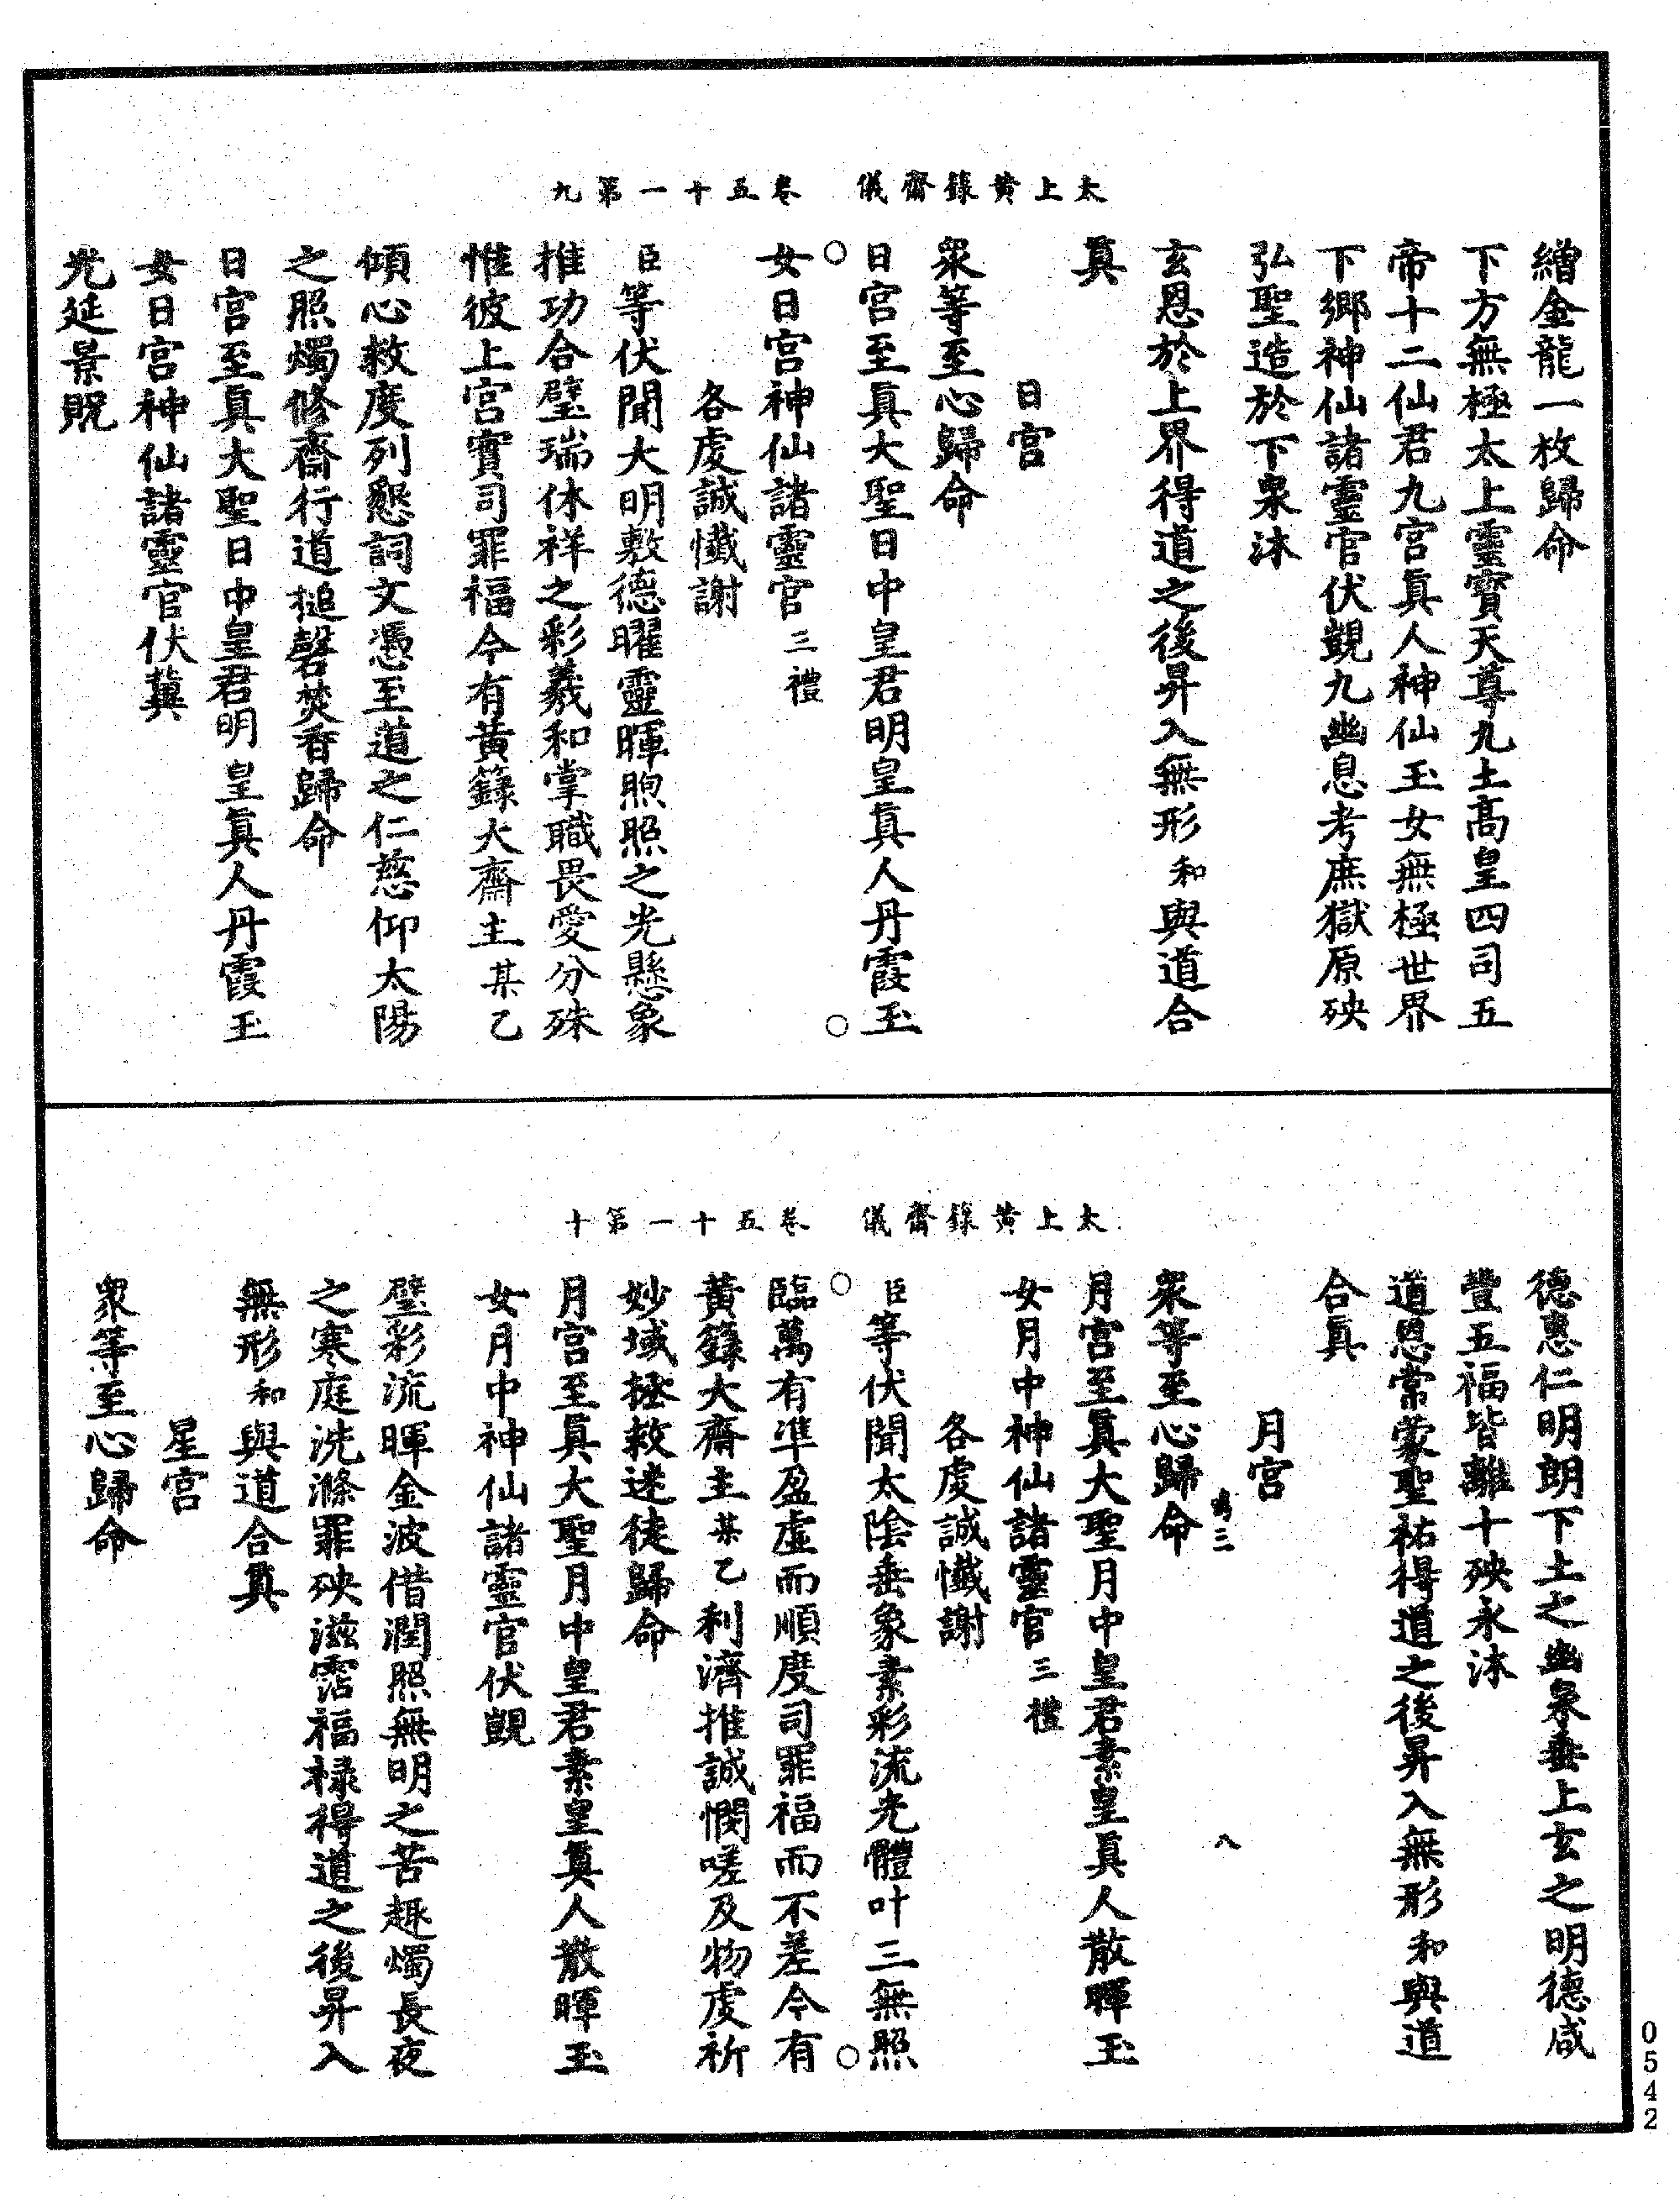 太上黃籙齋儀　卷五十一第九
繒金龍一枚歸命
下方無極太上靈寶天尊九土高皇四司五
帝十二仙君九宮眞人神仙玉女無極世界
下鄉神仙諸靈官伏覬九幽息考庶獄原殃
弘聖造於下泉沐
玄恩於上界得道之後昇入無形和與道合
眞
日宮
眾等至心歸命
日宮至眞大聖日中皇君明皇眞人丹霞玉
女日宮神仙諸靈官三禮
各虔誠懺謝
臣等伏聞大明敷德曜靈暉煦照之光懸象
推功合璧瑞休祥之彩羲和掌職畏愛分殊
惟彼上宮實司罪福今有黃籙大齋主某乙
傾心救度列懇詞文憑至道之仁慈仰太陽
之照燭修齋行道搥磬焚香歸命
日宮至眞大聖日中皇君明皇眞人丹霞玉
女日宮神仙諸靈官伏冀
光延景貺
太上黃籙齋儀　卷五十一第十
德惠仁明朗下土之幽泉垂上玄之明德咸
豐五福皆離十殃永沐
道恩常蒙聖祐得道之後昇入無形和與道
合眞
月宮
三　八
眾等至心歸命
月宮至眞大聖月中皇君素皇眞人散暉玉
女月中神仙諸靈官三禮
各虔誠懺謝
臣等伏聞太陰垂象素彩流光體叶三無照
臨萬有準盈虛而順度司罪福而不差今有
黃籙大齋主某乙利濟推誠憫嗟及物虔祈
妙域拯救迷徒歸命
月宮至眞大聖月中皇君素皇眞人散暉玉
女月中神仙諸靈官伏覬
璧彩流暉金波借潤照無明之苦趣燭長夜
之寒庭洗滌罪殃滋霑福祿得道之後昇入
無形和與道合眞
星宮
眾等至心歸命
0542